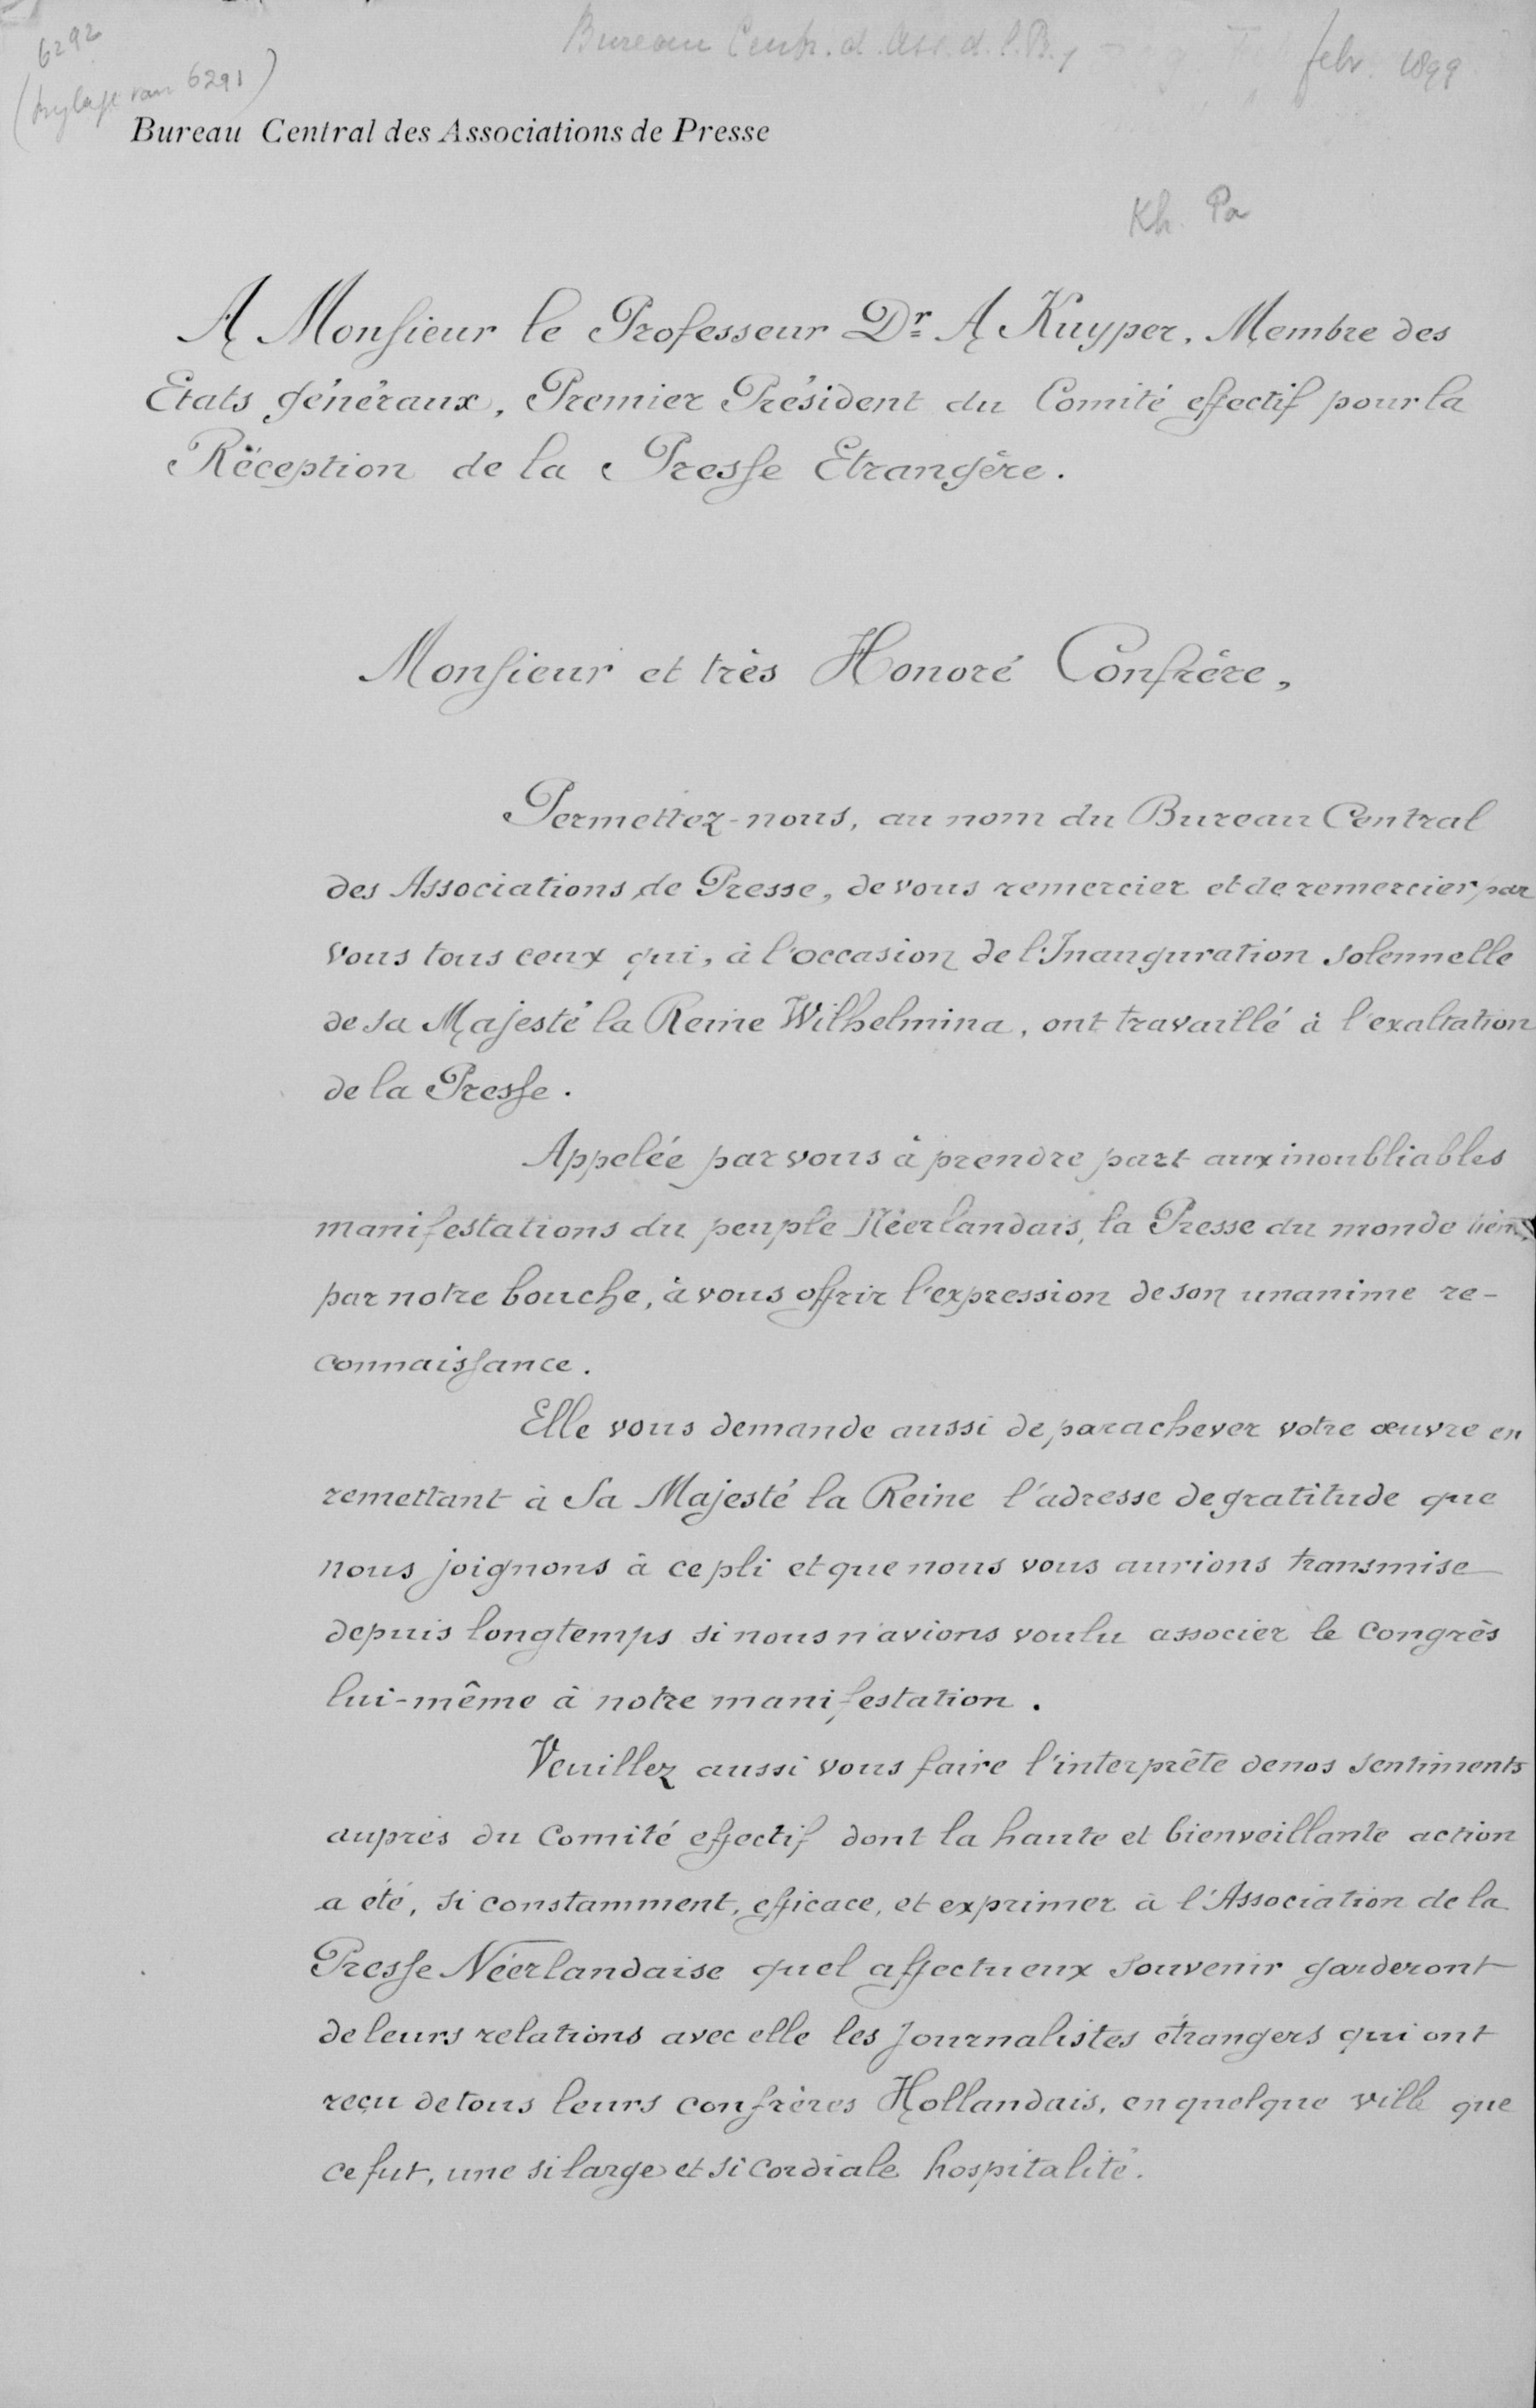 6292
(bylage van 6291)
Bureau Centr. d. Ass. d. l. P.
febr. 1899
Bureau Central des Associations de Presse
Kh. Pa
A Monsieur le Professeur Dr A Kuyper, Membre des
Etats généraux, Premier Président du Comité effectif pour la
Réception de la Presse Etrangère.
Monsieur et très Honoré Confrère,
Permettez-nous, au nom du Bureau Central
des Associations de Presse, de vous remercier et de remercier par
vous tous ceux qui, à l'occasion de l'Inauguration solennelle
de sa Majesté la Reine Wilhelmina, ont travaillé à l'exaltation
de la Presse.
Appelée par vous à prendre part aux inoubliables
manifestations du peuple Néerlandais, la Presse du monde tient,
par notre bouche, à vous offrir l'expression de son unanime re-
connaissance.
Elle vous demande aussi de parachever votre œuvre en
remettant à Sa Majesté la Reine l'adresse de gratitude que
nous joignons à ce pli et que nous vous aurions transmise
depuis longtemps si nous n'avions voulu associer le Congrès
lui-même à notre manifestation.
Veuillez aussi vous faire l'interprête de nos sentiments
auprès du Comité effectif dont la haute et bienveillante action
a été, si constamment, efficace, et exprimer à l'Association de la
Presse Néerlandaise quel affectueux souvenir garderont
de leurs relations avec elle les Journalistes étrangers qui ont
reçu de tous leurs confrères Hollandais, en quelque ville que
ce fut, une si large et si cordiale hospitalité.